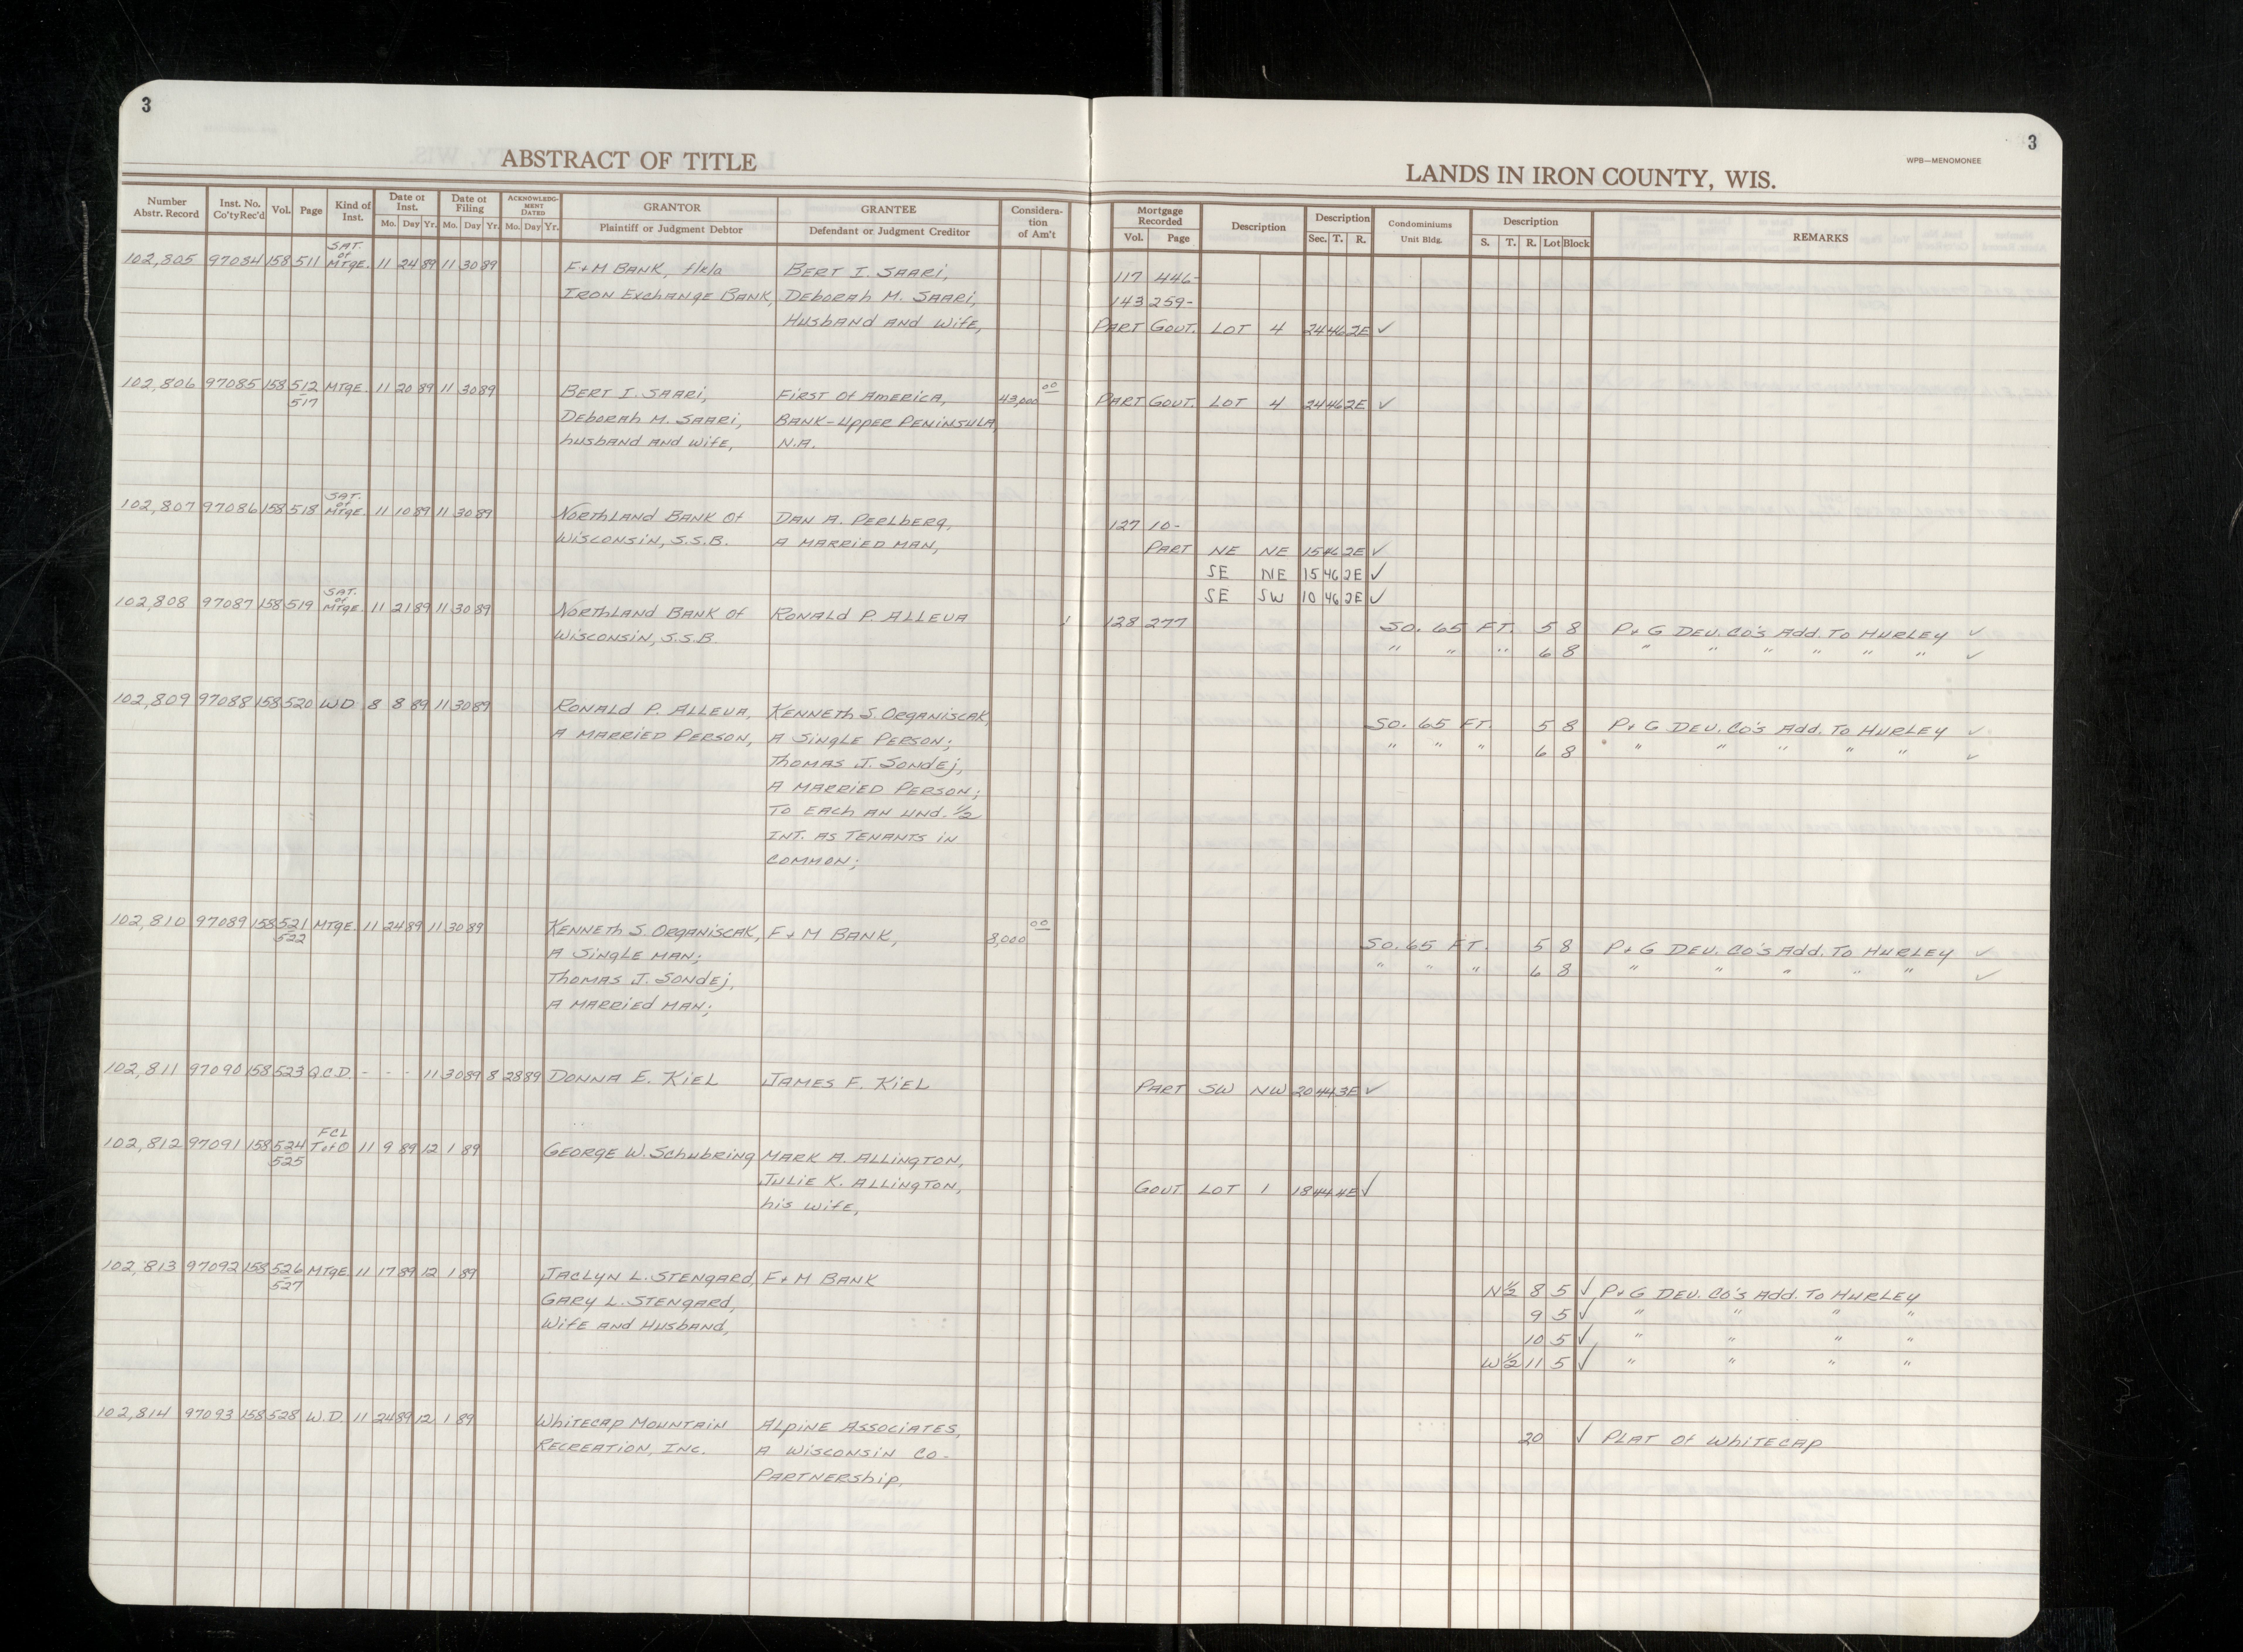 3
3
ABSTRACT OF TITLE
LANDS IN IRON COUNTY, WIS.
WPB—MENOMONEE
Number Abstr. Record Inst. No. Co'tyRec'd Vol. Page Kind of Inst. Date of Inst. Mo. Day Yr. Date of Filing Mo. Day Yr. ACKNOWLEDGMENT DATED Mo. Day Yr. GRANTOR Plaintiff or Judgment Debtor GRANTEE Defendant or Judgment Creditor Consideration of Am't Mortgage Recorded Vol. Page Description Description Sec. T. R. Condominiums Unit Bldg. Description S. T. R. Lot Block REMARKS
102,805 97084 158 511 SAT. of MTGE. 11 24 89 11 30 89 F+M BANK, f/k/a BERT I. SAARI, 117 446-
IRON EXCHANGE BANK, DEBORAH M. SAARI, 143 259-
HUSBAND AND WIFE, PART GOVT. LOT 4 24 46 2E ✓
102,806 97085 158 512-517 MTGE. 11 20 89 11 30 89 BERT I. SAARI, FIRST OF AMERICA, 43,000 00 PART GOVT. LOT 4 24 46 2E ✓
DEBORAH M. SAARI, BANK-UPPER PENINSULA,
HUSBAND AND WIFE, N.A.
102,807 97086 158 518 SAT. of MTGE. 11 10 89 11 30 89 NORTHLAND BANK OF DAN A. PERLBERG, 127 10-
WISCONSIN, S.S.B. A MARRIED MAN, PART NE NE 15 46 2E ✓
SE NE 15 46 2E ✓
SE SW 10 46 2E ✓
102,808 97087 158 519 SAT. of MTGE. 11 21 89 11 30 89 NORTHLAND BANK OF RONALD P. ALLEVA 128 277 SO. 65 FT. 5 8 P+G DEV. CO'S ADD. TO HURLEY ✓
WISCONSIN, S.S.B. " " " 6 8 " " " " " " ✓
102,809 97088 158 520 W.D. 8 8 89 11 30 89 RONALD P. ALLEVA, KENNETH S. ORGANISCAK, SO. 65 FT. 5 8 P+G DEV. CO'S ADD. TO HURLEY ✓
A MARRIED PERSON, A SINGLE PERSON; " " " 6 8 " " " " " ✓
THOMAS J. SONDEJ,
A MARRIED PERSON;
TO EACH AN UND. 1/2
INT. AS TENANTS IN
COMMON;
102,810 97089 158 521-522 MTGE. 11 24 89 11 30 89 KENNETH S. ORGANISCAK, F+M BANK, 8,000 00 SO. 65 FT. 5 8 P+G DEV. CO'S ADD. TO HURLEY ✓
A SINGLE MAN; " " " 6 8 " " " " " ✓
THOMAS J. SONDEJ,
A MARRIED MAN;
102,811 97090 158 523 Q.C.D. - - - 11 30 89 8 28 89 DONNA E. KIEL JAMES F. KIEL PART SW NW 20 44 3E ✓
102,812 97091 158 524-525 FCL T of O 11 9 89 12 1 89 GEORGE W. SCHUBRING MARK A. ALLINGTON,
JULIE K. ALLINGTON, GOVT LOT 1 18 44 4E ✓
HIS WIFE,
102,813 97092 158 526-527 MTGE. 11 17 89 12 1 89 JACLYN L. STENGARD, F+M BANK N 1/2 8 5 ✓ P+G DEV. CO'S ADD. TO HURLEY
GARY L. STENGARD, 9 5 ✓ " " " "
WIFE AND HUSBAND, 10 5 ✓ " " " "
W 1/2 11 5 ✓ " " " "
102,814 97093 158 528 W.D. 11 24 89 12 1 89 WHITECAP MOUNTAIN ALPINE ASSOCIATES, 20 ✓ PLAT OF WHITECAP
RECREATION, INC. A WISCONSIN CO-
PARTNERSHIP,